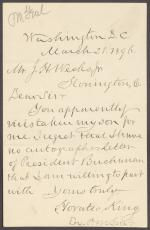 Washington D.C.
March 21. 1896.
Mr. J. H. Weeks Jr.
Stonington, C.
Dear Sir
You apparently
mistake my son for
me. I regret that I have
no autographic letter
of President Buchanan
that I am willing to part
with. Yours truly
Horatio King